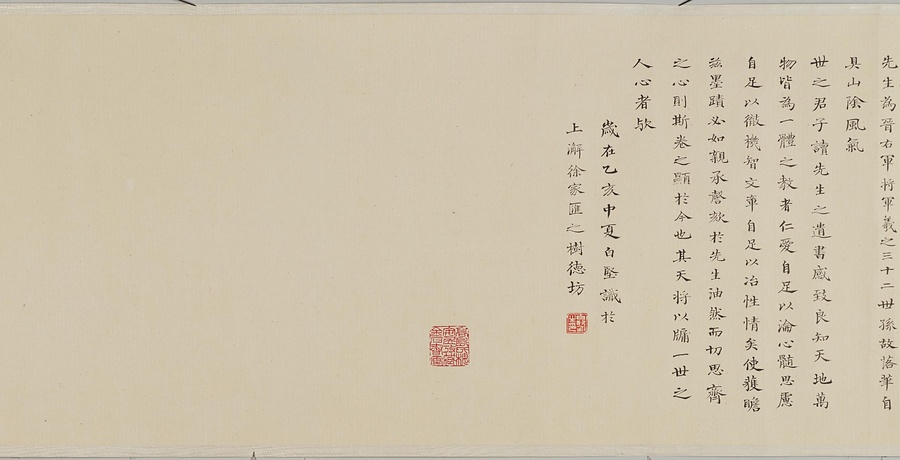 先生為晉右軍將軍羲之三十二世孫故落筆自
具山陰風氣
世之君子讀先生之遺書感致良知天地萬
物皆為一體之教者仁愛自足以淪心髓思慮
自足以徹機智文章自足以冶性情矣使獲瞻
茲墨蹟必如親承謦欬於先生油然而切思齊
之心則斯卷之顯於今也其天將以牖一世之
人心者歟
歲在乙亥中夏白堅識於
上澥徐家匯之樹德坊